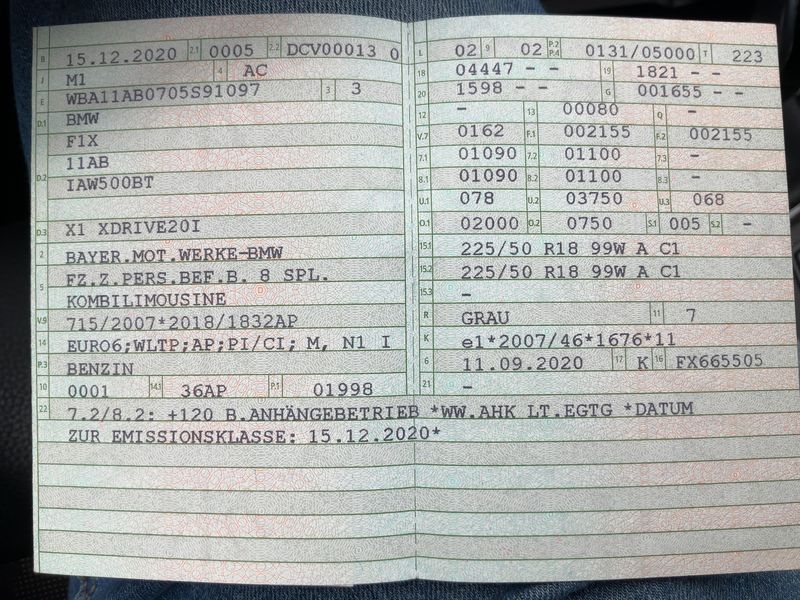 B 15.12.2020 2.1 0005 2.2 DCV00013 0
J M1 4 AC
E WBA11AB0705S91097 3 3
D.1 BMW
F1X
D.2 11AB
IAW500BT
D.3 X1 XDRIVE20I
2 BAYER.MOT.WERKE-BMW
5 FZ.Z.PERS.BEF.B. 8 SPL.
KOMBILIMOUSINE
V.9 715/2007*2018/1832AP
14 EURO6;WLTP;AP;PI/CI; M, N1 I
P.3 BENZIN
10 0001 14.1 36AP P.1 01998
L 02 9 02 P.2 P.4 0131/05000 T 223
18 04447 - - 19 1821 - -
20 1598 - - G 001655 - -
12 - 13 00080 Q -
V.7 0162 F.1 002155 F.2 002155
7.1 01090 7.2 01100 7.3 -
8.1 01090 8.2 01100 8.3 -
U.1 078 U.2 03750 U.3 068
O.1 02000 O.2 0750 S.1 005 S.2 -
15.1 225/50 R18 99W A C1
15.2 225/50 R18 99W A C1
15.3 -
R GRAU 11 7
K e1*2007/46*1676*11
6 11.09.2020 17 K 16 FX665505
21 -
22 7.2/8.2: +120 B.ANHÄNGEBETRIEB *WW.AHK LT.EGTG *DATUM
ZUR EMISSIONSKLASSE: 15.12.2020*